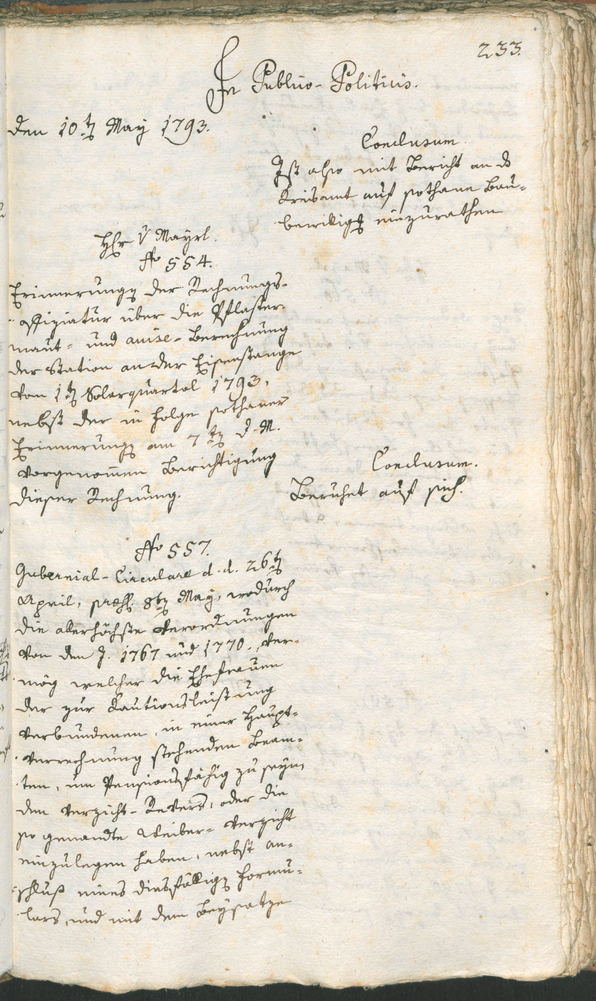 233.
In Publico-Politicis.
den 10t May 1793.
Conclusum
Ist also mit Bericht an ds
Kreisamt auf sothane Bau-
bewilligg einzurathen
Hr v Mayrl.
No 554.
Erinnerung der Rechnungs-
Offiziatur über die Pflaster
maut- und avise-Berechnung
der Station an der Eisenstange
vom 1t Solarquartal 1793,
nebst der in Folge sothaner
Erinnerung am 7t d. M.
vorgenomenen Berichtigung
dieser Rechnung.
Conclusum.
Beruhet auf sich.
No 557.
Gubernial-Circulare d. d. 26t
April, präs. 8t May, wodurch
die allerhöchste Verordnungen
von den J. 1767 und 1770. ver-
mög welcher die Ehefrauen
der zur Kautionsleistung
verbundenen, in einer Haupt-
verrechnung stehenden Beam-
ten, um Pensionsfähig zu seyn,
den Verzicht-Revers, oder die
so genandte Weiber-Verzicht
einzulegen haben, nebst an-
schluß eines diesfälligen Formu-
lars, und mit dem Beysatze